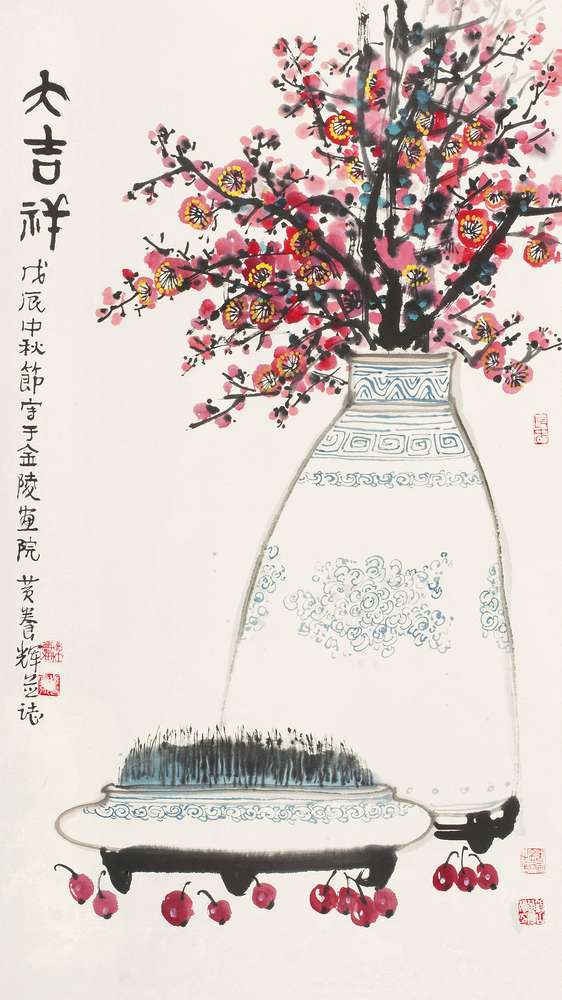 大吉祥
戊辰中秋節写于金陵画院 黄養辉並誌